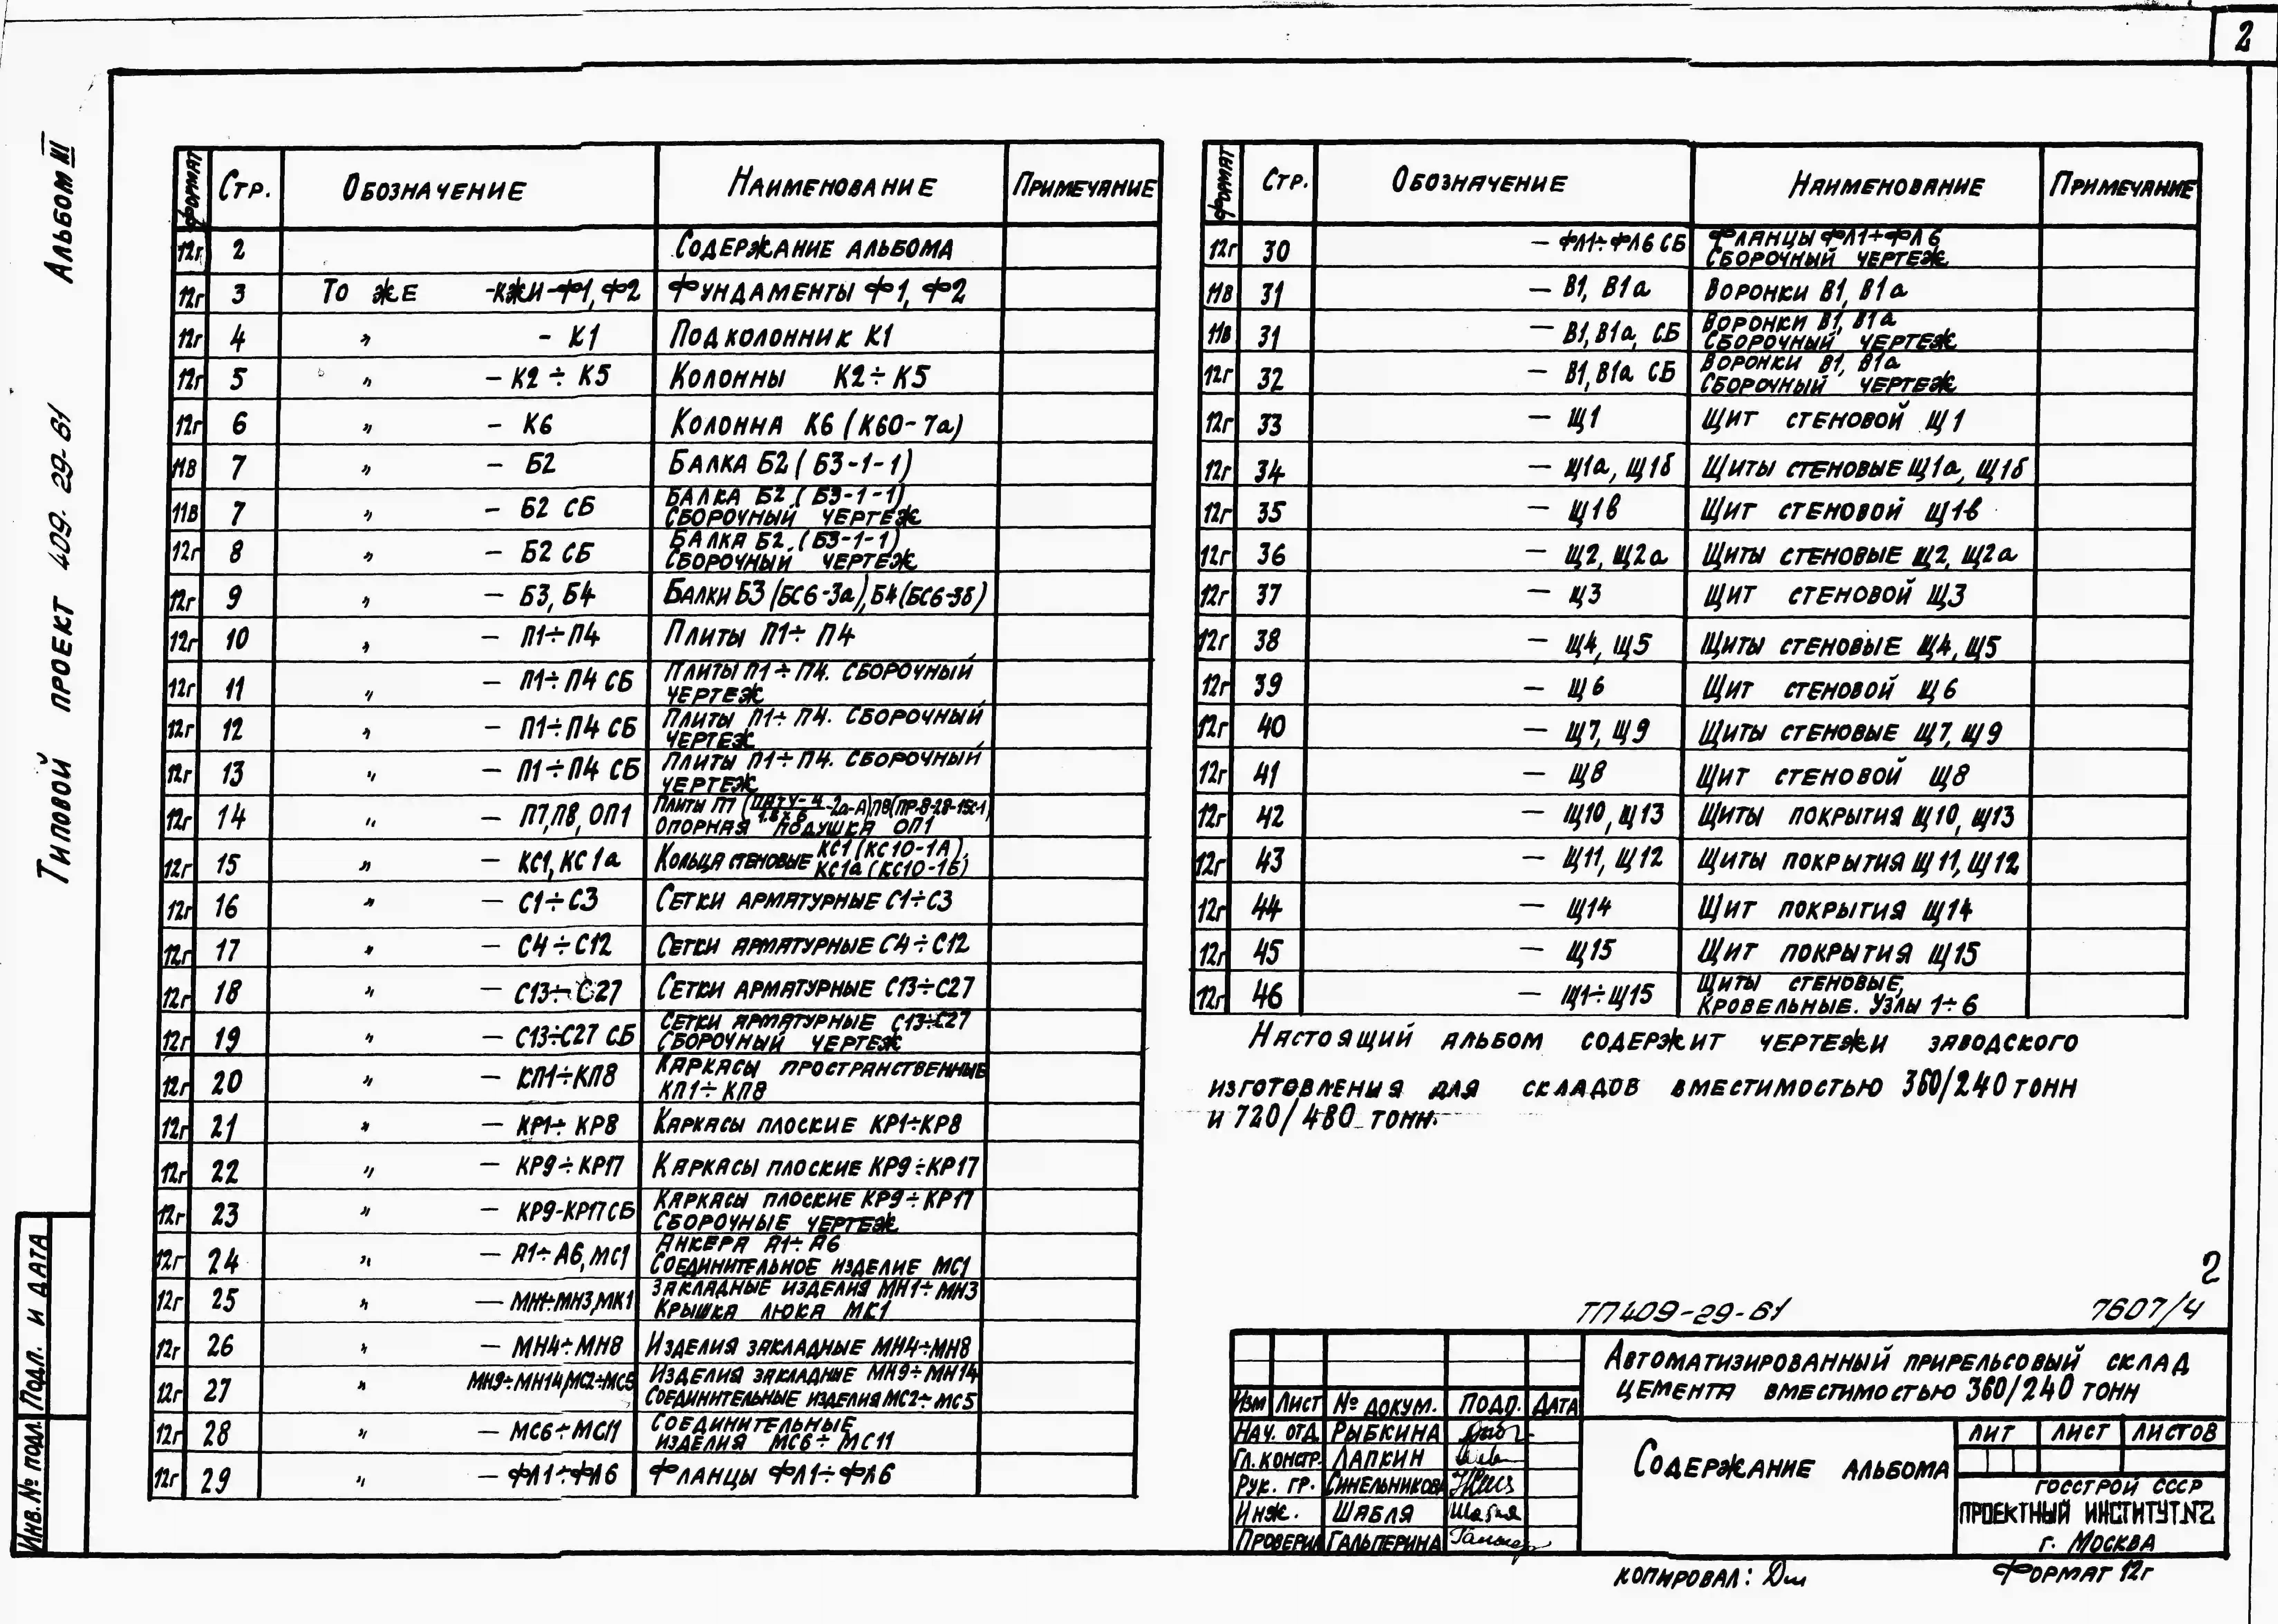 2
Альбом III
Типовой проект 409-29-61
Формат Стр. Обозначение Наименование Примечание
12г 2 Содержание альбома
12г 3 То же -КЖИ-Ф1, Ф2 Фундаменты Ф1, Ф2
12г 4 " - К1 Подколонник К1
12г 5 " - К2÷К5 Колонны К2÷К5
12г 6 " - К6 Колонна К6 (К60-7а)
11В 7 " - Б2 Балка Б2 (Б3-1-1)
11В 7 " - Б2 СБ Балка Б2 (Б3-1-1)
Сборочный чертеж
12г 8 " - Б2 СБ Балка Б2. (Б3-1-1)
Сборочный чертеж
12г 9 " - Б3, Б4 Балки Б3 (БС6-3а), Б4 (БС6-3б)
12г 10 " - П1÷П4 Плиты П1÷П4
12г 11 " - П1÷П4 СБ Плиты П1÷П4. Сборочный
чертеж
12г 12 " - П1÷П4 СБ Плиты П1÷П4. Сборочный
чертеж
12г 13 " - П1÷П4 СБ Плиты П1÷П4. Сборочный
чертеж
12г 14 " - П7, П8, ОП1 Плиты П7 -2а-А) П8 (ПР-8-28-15с-1)
опорная подушка ОП1
12г 15 " - КС1, КС1а Кольца стеновые КС1 (КС10-1А),
КС1а (КС10-1Б)
12г 16 " - С1÷С3 Сетки арматурные С1÷С3
12г 17 " - С4÷С12 Сетки арматурные С4÷С12
12г 18 " - С13÷С27 Сетки арматурные С13÷С27
12г 19 " - С13÷С27 СБ Сетки арматурные С13÷С27
Сборочный чертеж
12г 20 " - КП1÷КП8 Каркасы пространственные
КП1÷КП8
12г 21 " - КР1÷КР8 Каркасы плоские КР1÷КР8
12г 22 " - КР9÷КР17 Каркасы плоские КР9÷КР17
12г 23 " - КР9-КР17СБ Каркасы плоские КР9÷КР17
Сборочные чертеж
12г 24 " - А1÷А6, МС1 Анкера А1÷А6
Соединительное изделие МС1
12г 25 " - МН1÷МН3, МК1 Закладные изделия МН1÷МН3
Крышка люка МК1
12г 26 " - МН4÷МН8 Изделия закладные МН4÷МН8
12г 27 " МН9÷МН14, МС2÷МС5 Изделия закладные МН9÷МН14
Соединительные изделия МС2÷МС5
12г 28 " - МС6÷МС11 Соединительные
изделия МС6÷МС11
12г 29 " - ФЛ1÷ФЛ6 Фланцы ФЛ1÷ФЛ6
Формат Стр. Обозначение Наименование Примечание
12г 30 - ФЛ1÷ФЛ6 СБ Фланцы ФЛ1÷ФЛ6
Сборочный чертеж
11В 31 - В1, В1а Воронки В1, В1а
11В 31 - В1, В1а, СБ Воронки В1, В1а
Сборочный чертеж
12г 32 - В1, В1а СБ Воронки В1, В1а
Сборочный чертеж
12г 33 - Щ1 Щит стеновой Щ1
12г 34 - Щ1а, Щ1б Щиты стеновые Щ1а, Щ1б
12г 35 - Щ1в Щит стеновой Щ1в
12г 36 - Щ2, Щ2а Щиты стеновые Щ2, Щ2а
12г 37 - Щ3 Щит стеновой Щ3
12г 38 - Щ4, Щ5 Щиты стеновые Щ4, Щ5
12г 39 - Щ6 Щит стеновой Щ6
12г 40 - Щ7, Щ9 Щиты стеновые Щ7, Щ9
12г 41 - Щ8 Щит стеновой Щ8
12г 42 - Щ10, Щ13 Щиты покрытия Щ10, Щ13
12г 43 - Щ11, Щ12 Щиты покрытия Щ11, Щ12
12г 44 - Щ14 Щит покрытия Щ14
12г 45 - Щ15 Щит покрытия Щ15
12г 46 - Щ1÷Щ15 Щиты стеновые,
кровельные. Узлы 1÷6
Настоящий альбом содержит чертежи заводского
изготовления для складов вместимостью 360/240 тонн
и 720/480 тонн.
2
ТП409-29-61 7607/4
Автоматизированный прирельсовый склад
цемента вместимостью 360/240 тонн
Изм Лист № докум. Подп. Дата
Нач. отд. Рыбкина
Гл. констр. Лапкин
Рук. гр. Синельникова
Инж. Шабля Шабля
Проверил Гальперина
Содержание альбома
Лит Лист Листов
Госстрой СССР
Проектный институт №2
г. Москва
Копировал: Формат 12г
Инв.№ подл. Подп. и дата